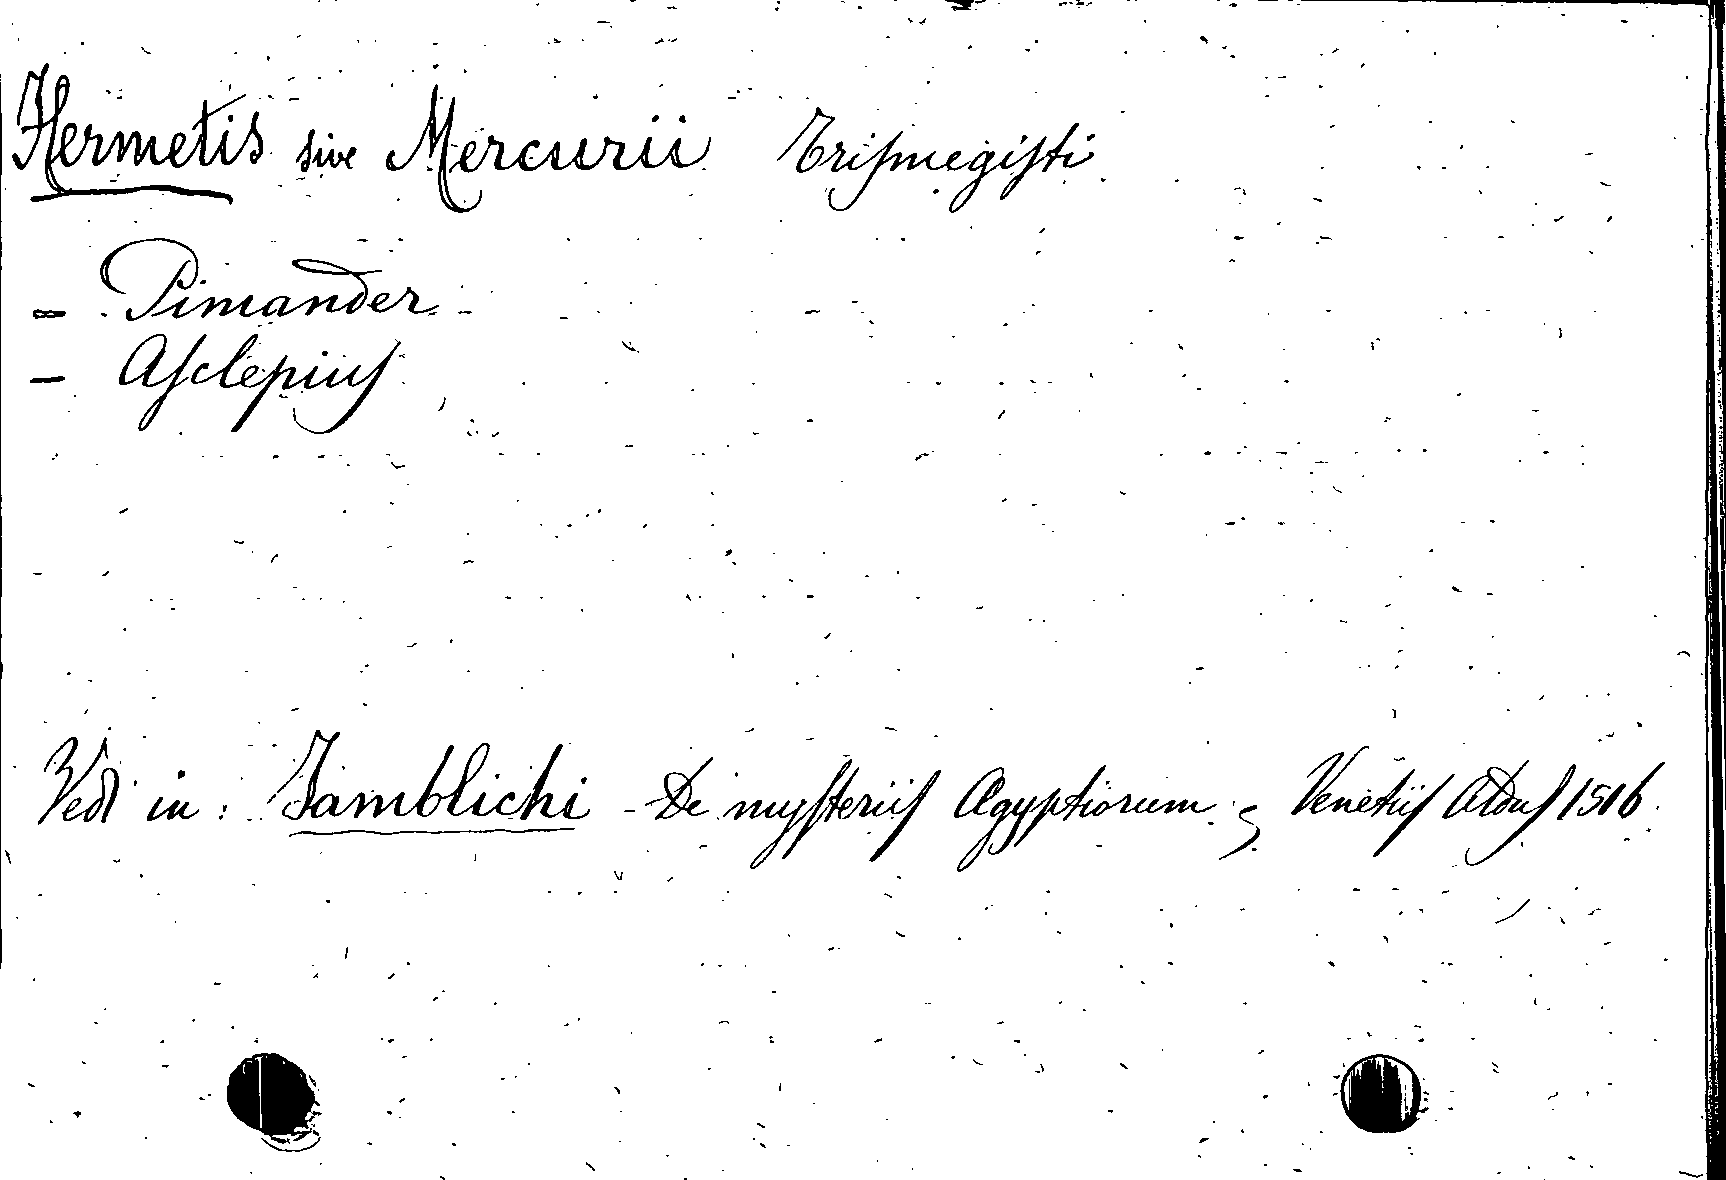 Hermetis sive Mercurii Triſmegiſti
- Pimander
- Aſclepiuſ
Vedi in: Jamblichi - De myſteriiſ Ægyptiorum; Venetiiſ Alduſ 1516